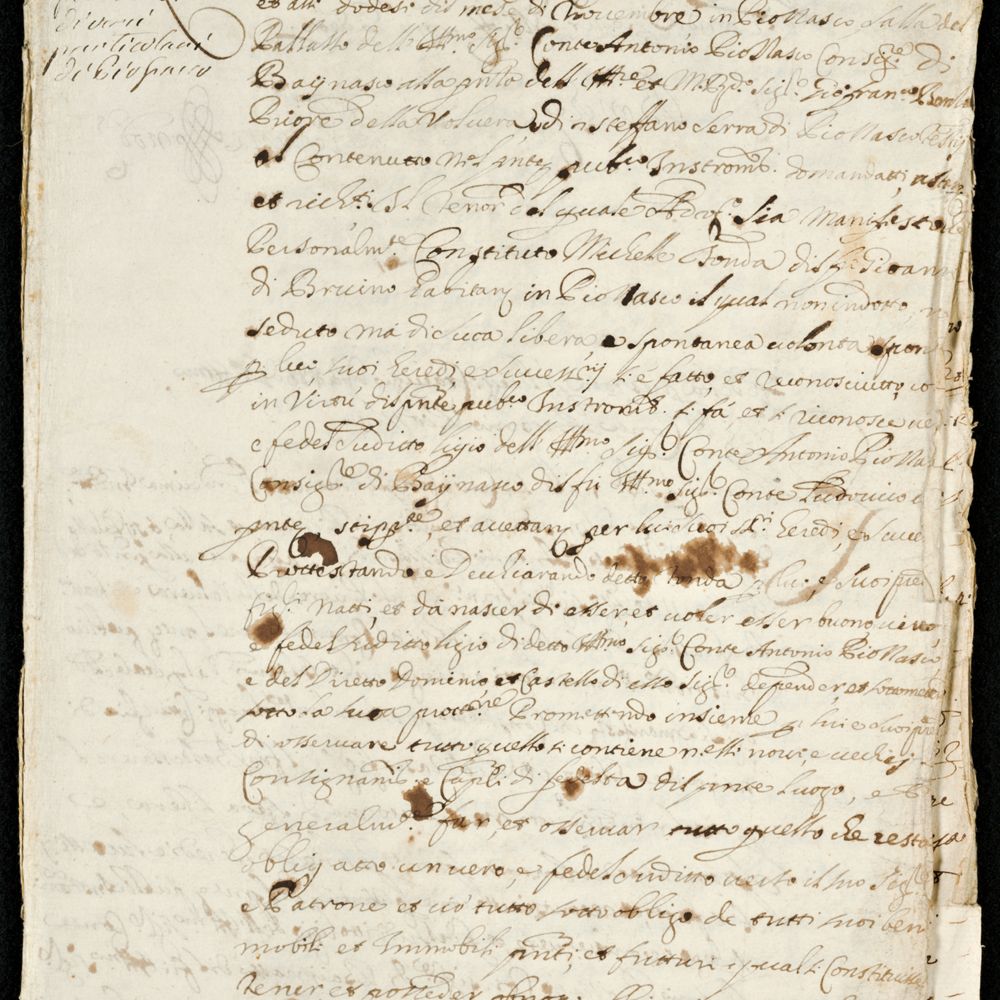 diversi
particolari
di Piosasco
et alli dodesi dil mese di Novembre in Piossasco Salla del
Pallatio dell Ill.mo Sig.r Conte Antonio Piossasco Consig.re di
Baynasco alla p.nza dell Ill.re et M. R.do Sig.r Gio fran.co
Priore della Volvera, di n. steffano Serra di Piossasco
al Contenutto nel p.nte pub.co Instrom.to domandatti,
et rich.ti Il Tenor del quale Ad og. sia manifesto
Personalm.te Constituto Michelle Tonda dil fu Gioann
di Bruino habitan in Piossasco il qual non indotto,
seduto ma di sua libera e spontanea volonta
p lui, suoi heredi, e sucess.ri si é fatto, et riconosciutto, co
in Virtú dil p.nte pub.co Instrom.to si fá, et si riconosce
e fedel suditto ligio dell Ill.mo Sig.r Conte Antonio Piossas
Consig.re di Baynasco dil fu Ill.mo Sig.r Conte Ludovico
p.nte, stipp.te, et accettan per lui suoi heredi, e succ
Prottestando e Dechiarando detto Tonda p lui, e suoi
fig.li Natti, et da nascer di esser, et voler esser buono vero
e fedel suditto ligio di detto Ill.mo Sig.r Conte Antonio Piossasco
e del Diretto Dominio et Castello di esso Sig.r depender et sottomett
sotto la sua prott.ne Promettendo insieme p lui e suoi
di osservare tutto quello si contiene nelli novi, e vechij
Consignam.ti e Cap.li di fedelta dil p.nte luogo, e
generalm.te far, et osservar tutto quello che resta
oblig atto un vero, e fedel suditto verso il suo Sig.r
e Patrone et ció tutto sotto obligo de tutti suoi beni
mobili et Immobili p.nti, et futturi quali Constituisse
tener et posseder